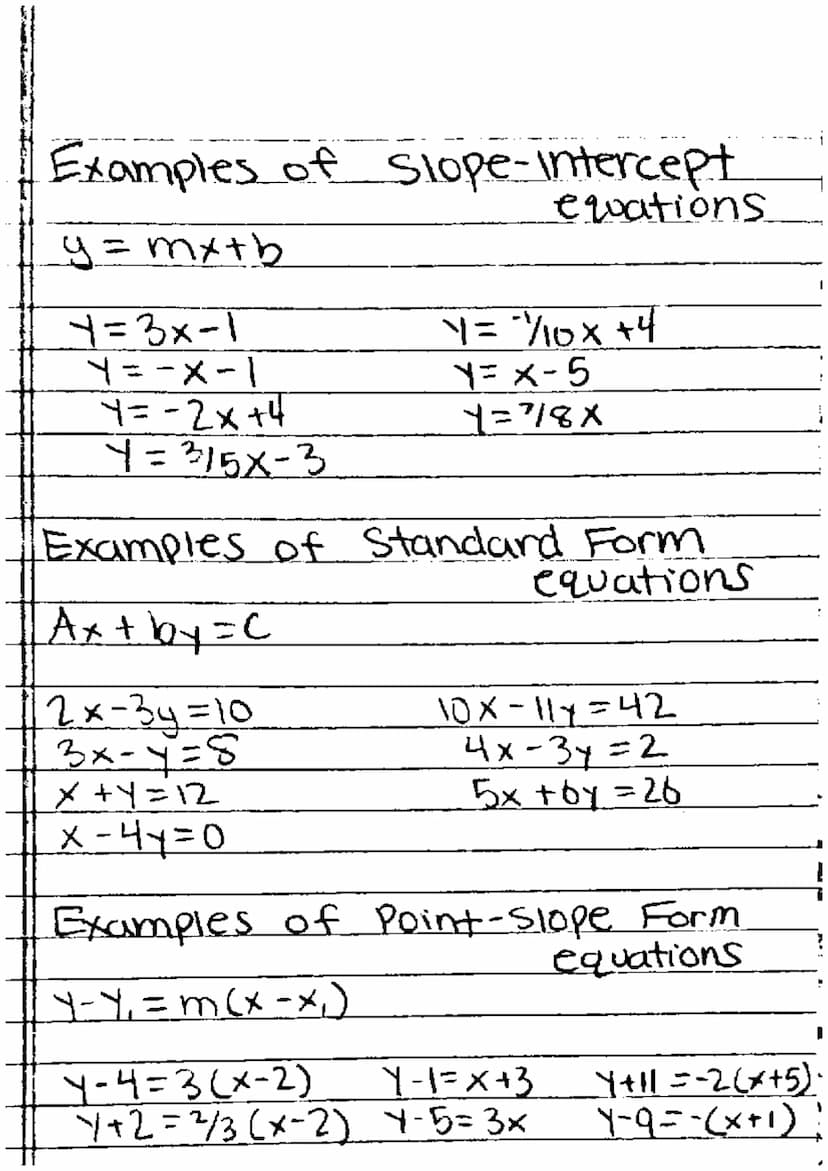 Examples of Slope-Intercept
equations
y = mx+b
y=3x-1 y= -1/10x +4
y=-x-1 y= x-5
y=-2x+4 y=7/8x
y=3/5x-3
Examples of Standard Form
equations
Ax + by = C
2x-3y=10 10x-11y=42
3x-y=8 4x-3y=2
x+y=12 5x+6y=26
x-4y=0
Examples of Point-Slope Form
equations
y-y₁=m(x-x₁)
y-4=3(x-2) y-1=x+3 y+11=-2(x+5)
y+2=2/3(x-2) y-5=3x y-9=-(x+1)